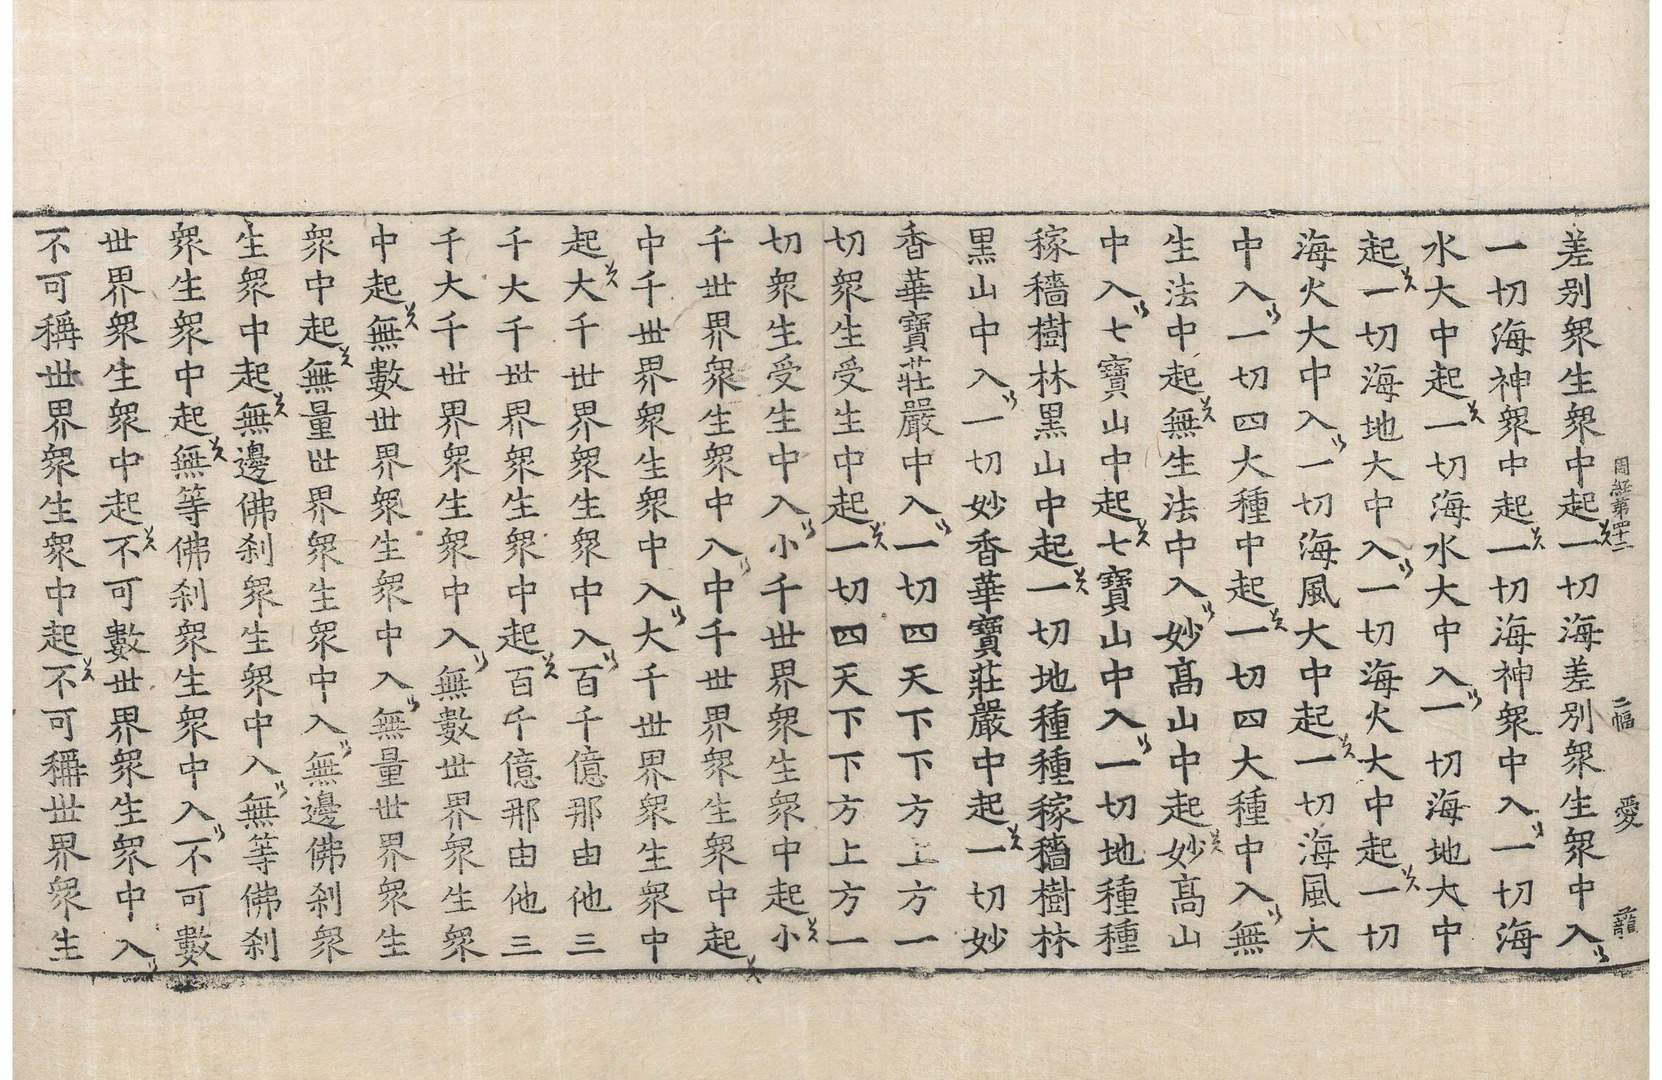 周経第四十二 二幅 愛
差別衆生衆中起一切海差別衆生衆中入
一切海神衆中起一切海神衆中入一切海
水大中起一切海水大中入一切海地大中
起一切海地大中入一切海火大中起一切
海火大中入一切海風大中起一切海風大
中入一切四大種中起一切四大種中入無
生法中起無生法中入妙髙山中起妙髙山
中入七寶山中起七寶山中入一切地種種
稼穡樹林黒山中起一切地種種稼穡樹林
黒山中入一切妙香華寶莊嚴中起一切妙
香華寶莊嚴中入一切四天下下方上方一
切衆生受生中起一切四天下下方上方一
切衆生受生中入小千世界衆生衆中起小
千世界衆生衆中入中千世界衆生衆中起
中千世界衆生衆中入大千世界衆生衆中
起大千世界衆生衆中入百千億那由他三
千大千世界衆生衆中起百千億那由他三
千大千世界衆生衆中入無數世界衆生衆
中起無數世界衆生衆中入無量世界衆生
衆中起無量世界衆生衆中入無邊佛刹衆
生衆中起無邊佛刹衆生衆中入無等佛刹
衆生衆中起無等佛刹衆生衆中入不可數
世界衆生衆中起不可數世界衆生衆中入
不可稱世界衆生衆中起不可稱世界衆生